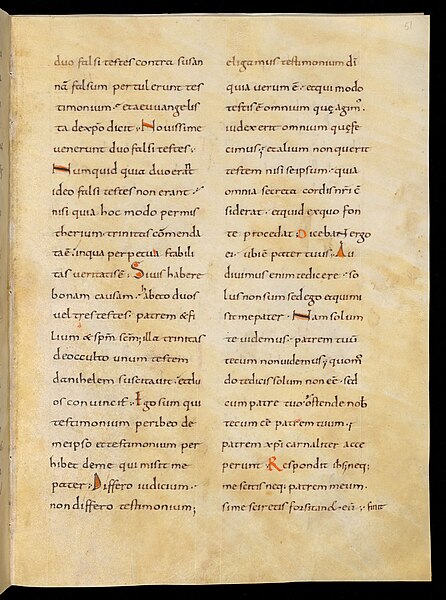 51
duo falsi testes contra susan
nā falsum pertulerunt tes
timonium· et aeuuangelis
ta dexpō dicit· Nouissime
uenerunt duo falsi testes·
Numquid quia duo erāt
ideo falsi testes non erant·
nisi quia hoc modo permis
therium trinitas cōmenda
tā ē· inqua perpetua stabili
tas ueritatis ē· Siuis habere
bonam causam· habeto duos
uel tres testes· patrem & fi
lium & spm̄ scm̄; illa trinitas
deocculto unum testem
danihelem suscitauit· & duos
conuincit· Ego sum qui
testimonium peribeo de
meipso et testimonium per
hibet deme qui misit me
pater· Differo iudicium·
non differo testimonium;
eligamus testimonium dī
quia uerum ē· etqui modo
testis ē omnium quę agim·
iudex erit omnium quę fe
cimus; et alium non querit
testem nisi seipsum· quia
omnia secreta cordis nr̄i c̄
siderat· et quid exquo fon
te procedat· Dicebant ergo
ei· ubi ē pater tuus· Au
diuimus enim te dicere· so
lus non sum sed ego et qui mi
sit me pater· Nam solum
te uidemus· patrem tuū
tecum non uidemus; quom̄
do te dicis solum non eē· sed
cum patre tuo· ostende nob
tecum eē patrem tuum·
patrem xp̄i carnaliter acce
perunt· Respondit ihs̄ neq;
me scitis neq; patrem meum·
si me sciretis forsitan & eū·